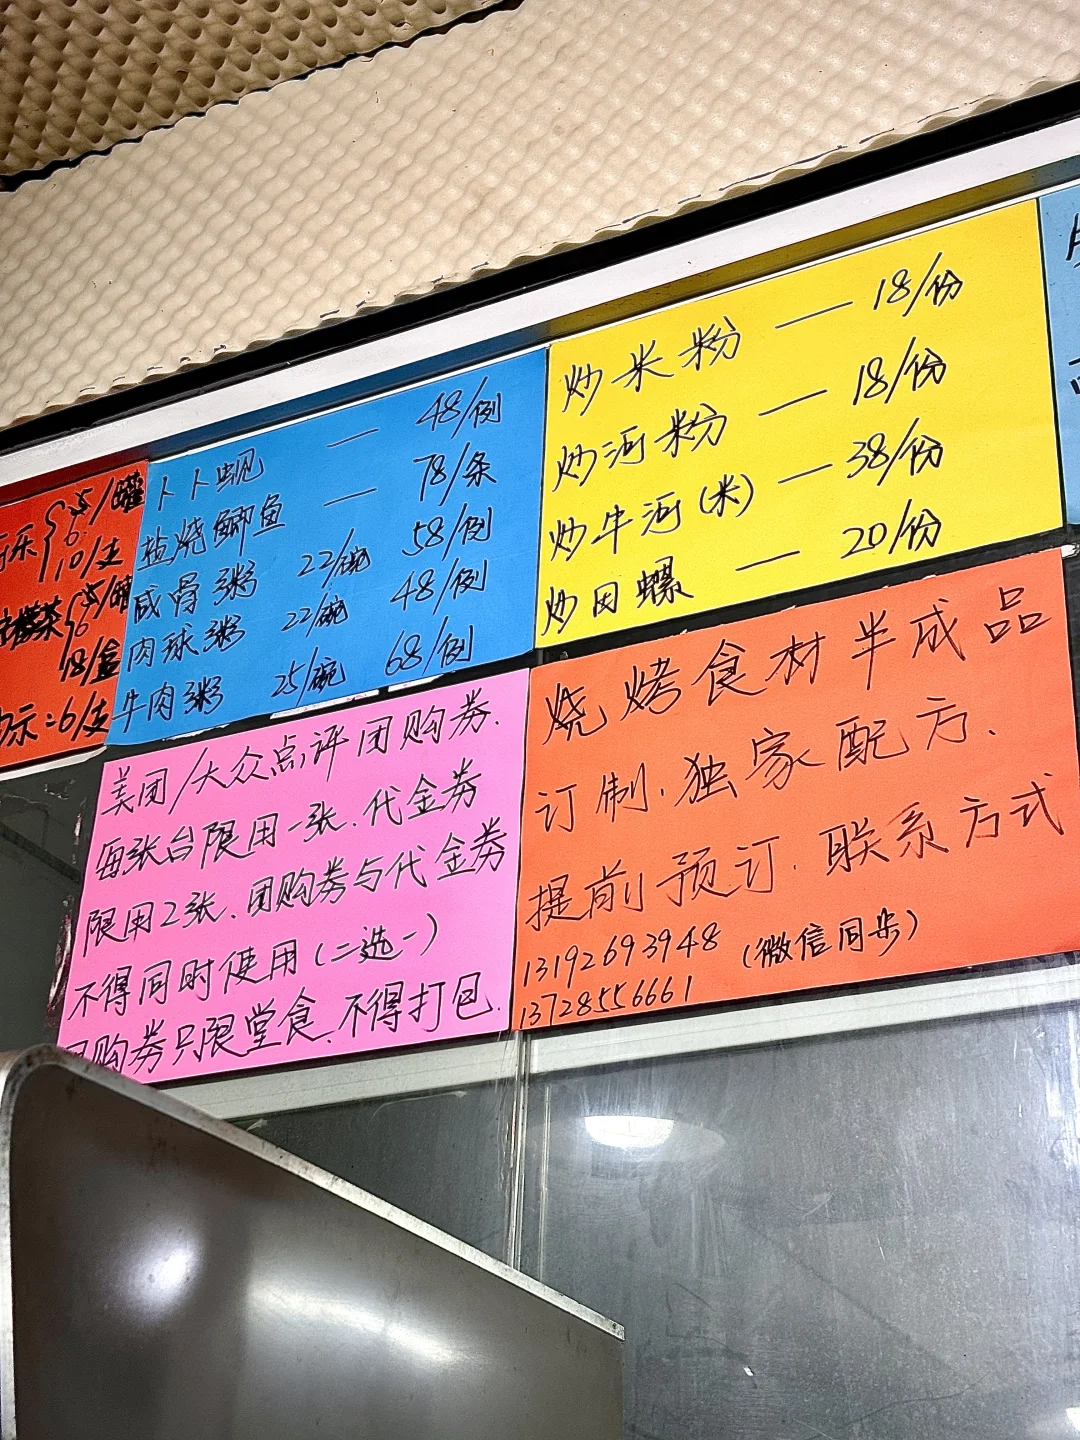 5/罐
6
10/支
5/罐
6
18/盒
6/支
卜卜蚬 — 48/例
盐烧鲫鱼 — 78/条
咸骨粥 22/碗 58/例
肉球粥 22/碗 48/例
牛肉粥 25/碗 68/例
炒米粉 — 18/份
炒河粉 — 18/份
炒牛河(米) — 38/份
炒田螺 — 20/份
美团/大众点评团购券.
每张台限用一张.代金券
限用2张.团购券与代金券
不得同时使用(二选一)
购券只限堂食.不得打包.
烧烤食材半成品
订制.独家配方.
提前预订.联系方式
13192693948 (微信同步)
13728556661